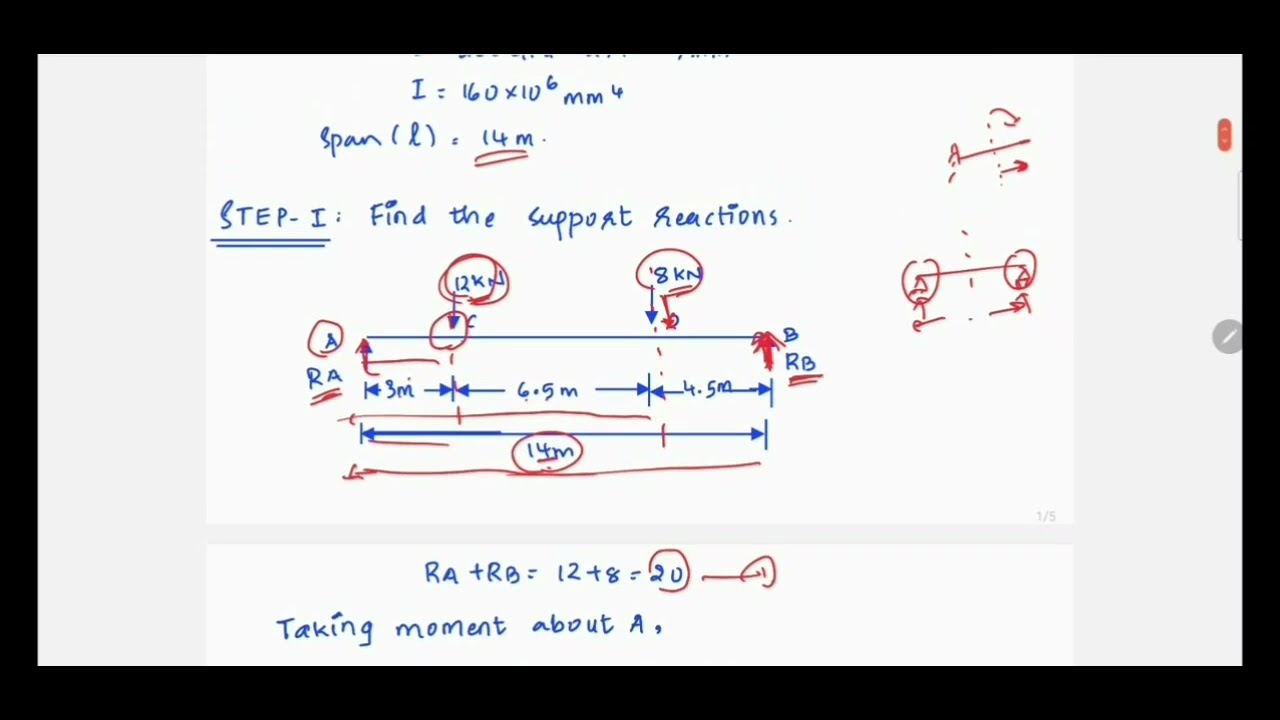 I = 160×10⁶ mm⁴
Span (l) = 14 m.
STEP-I: Find the support reactions.
12KN 8KN
A C D B
RA RB
3m 6.5m 4.5m
14m
1/5
RA + RB = 12+8 = 20 — 1
Taking moment about A,
A